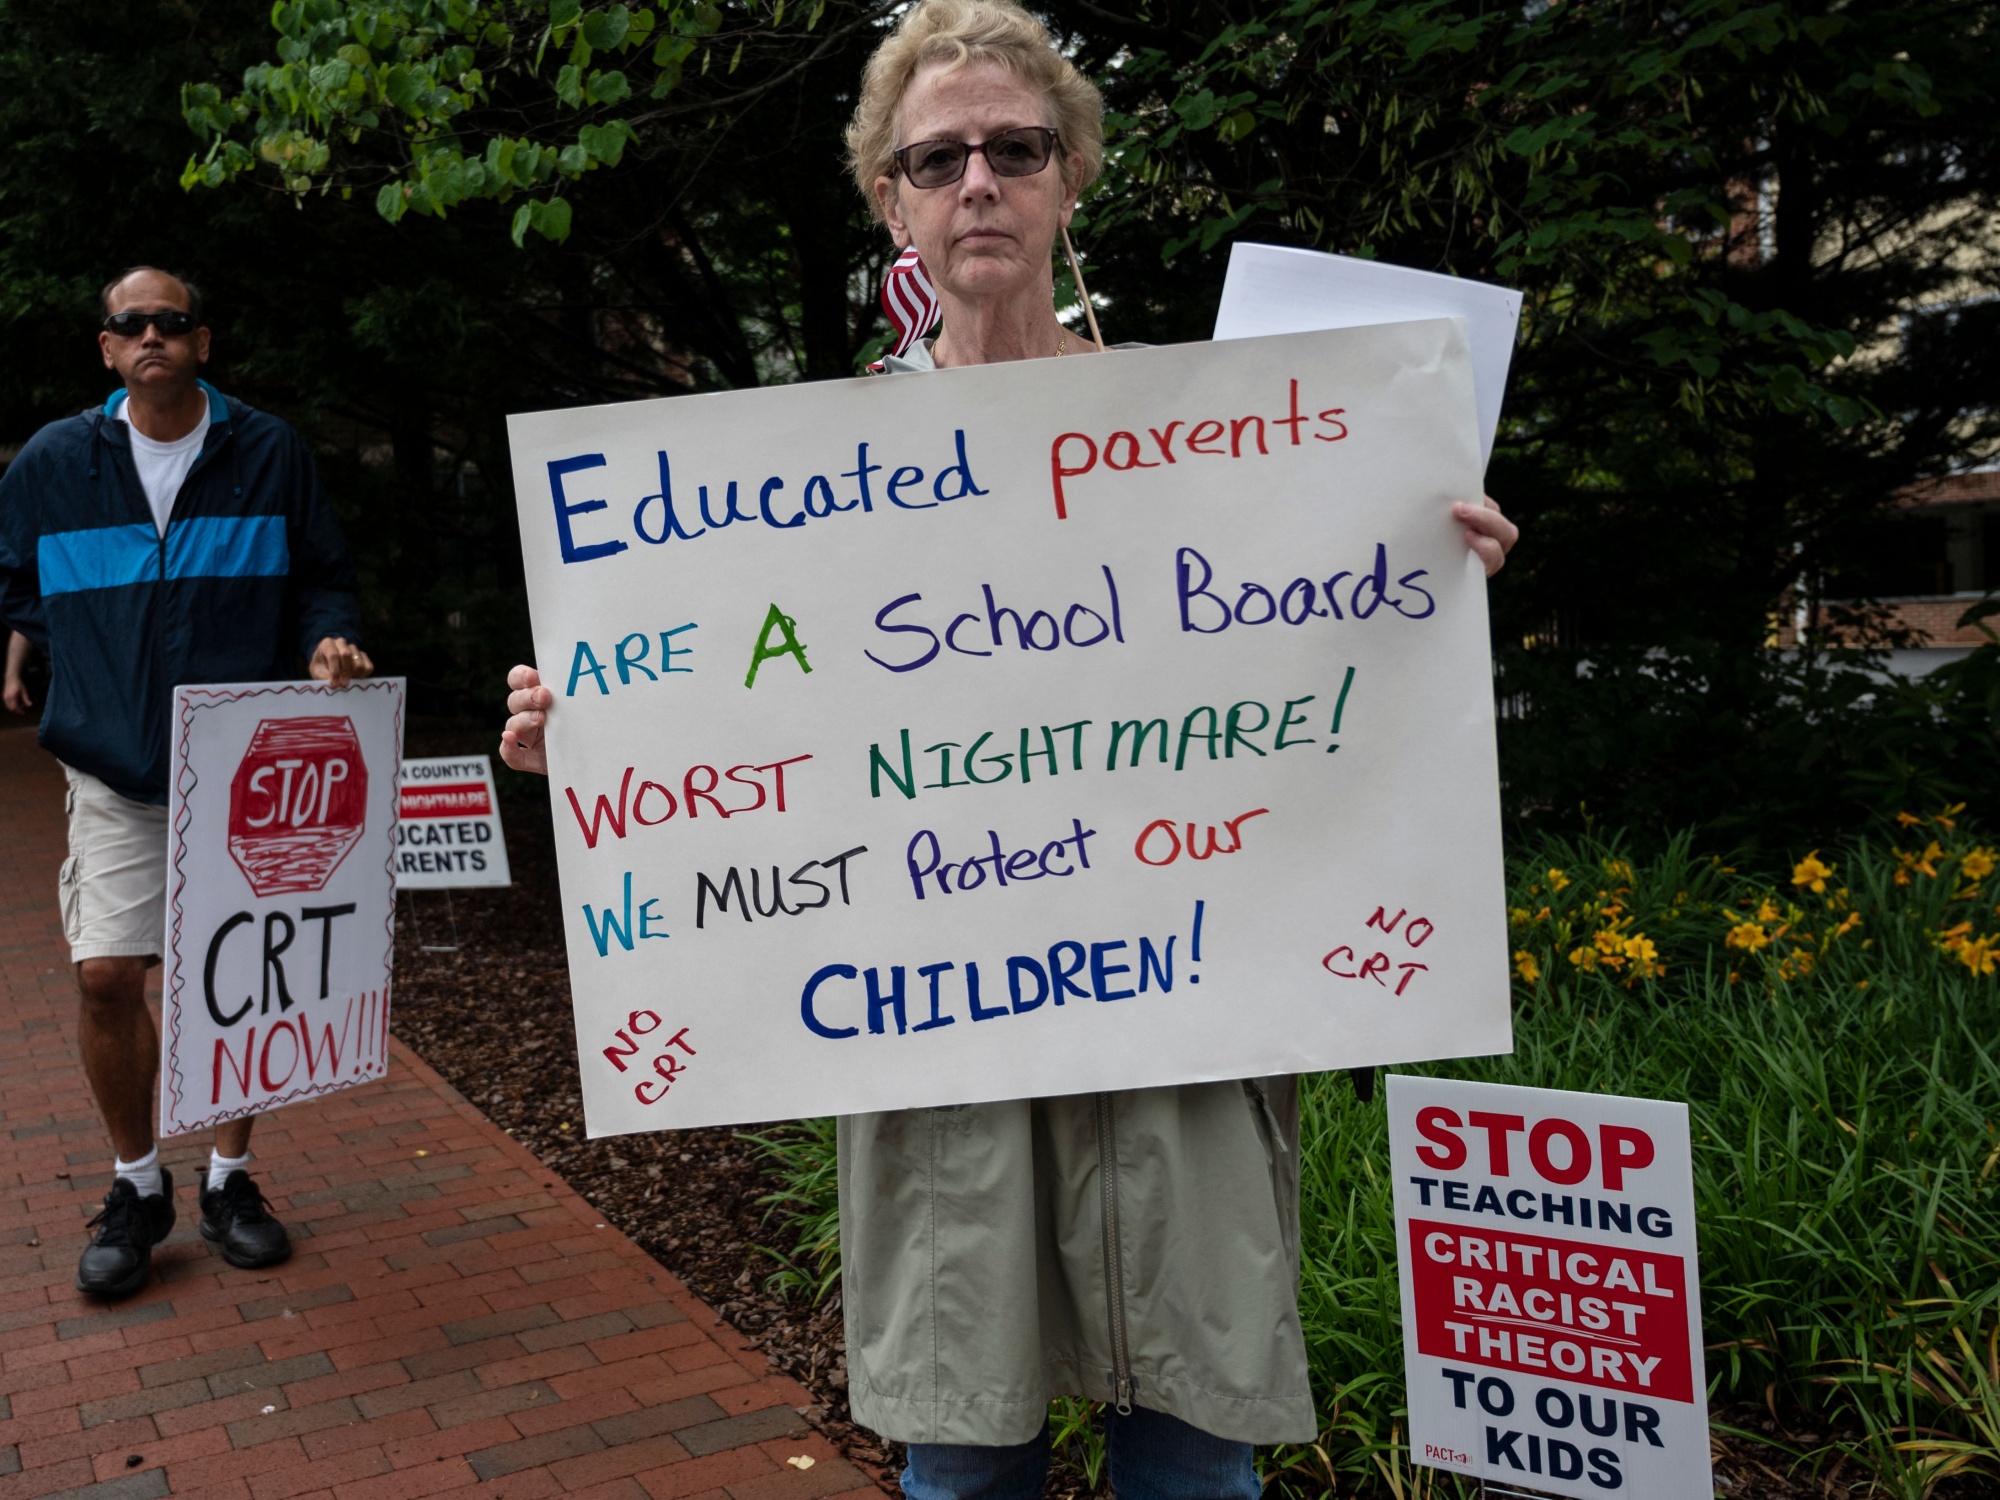 Educated parents
ARE A School Boards
WORST NIGHTMARE!
WE MUST Protect Our
CHILDREN!
NO
CRT
NO
CRT
STOP
CRT
NOW!!!
COUNTY'S
NIGHTMARE
STOP
TEACHING
CRITICAL
RACIST
THEORY
TO OUR
KIDS
PACT